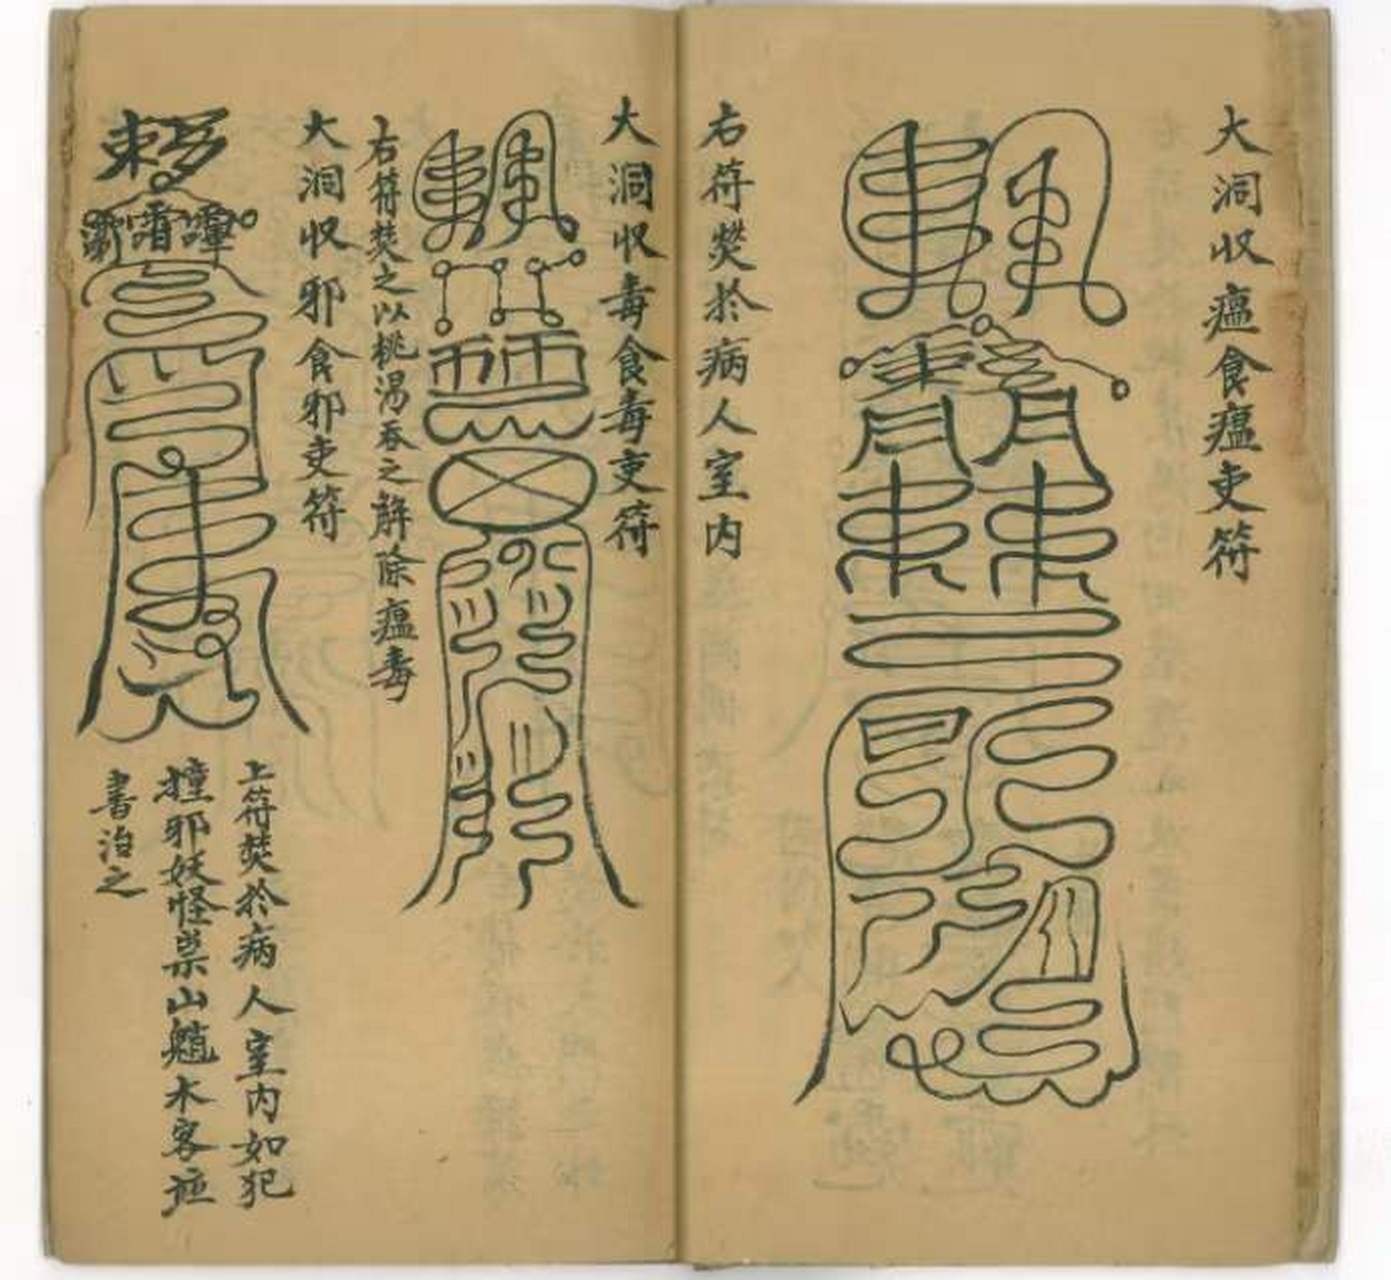 大洞収瘟食瘟吏符
右符焚於病人室内
大洞収毒食毒吏符
右符焚之以桃湯吞之解除瘟毒
大洞収邪食邪吏符
敕
上符焚於病人室内如犯
撞邪妖怪祟山魈木客並
書治之